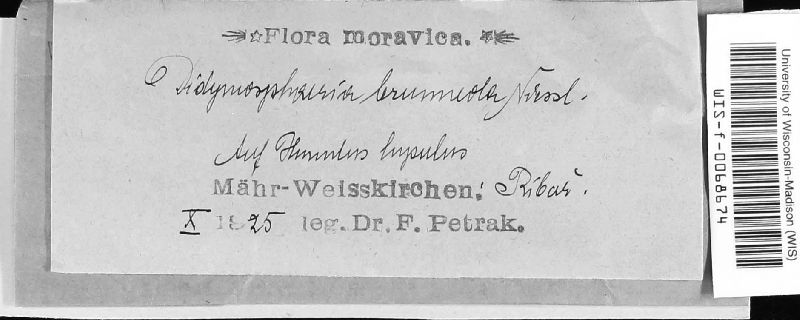 Flora moravica.
Didymosphaeria brunneola Niessl.
Auf Humulus lupulus
Mähr-Weisskirchen: Ribař.
X 1925 leg. Dr. F. Petrak.
University of Wisconsin-Madison (WIS)
WIS-f-0068674